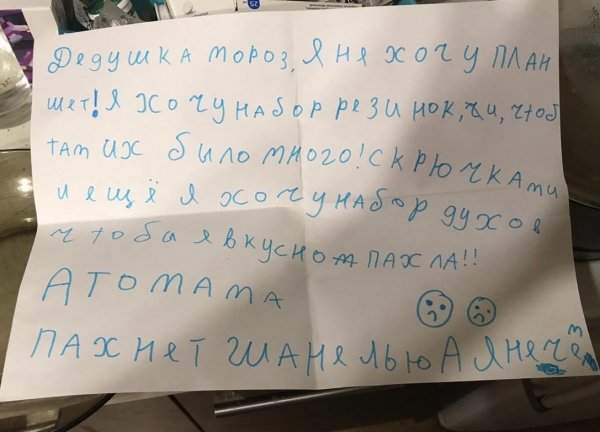 Дедушка мороз, я не хочу план
шет! я хочу набор резинок, чтоб
там их было много! с крючками
и ещё я хочу набор духов
чтоб я вкусно пахла!!
А то мама
пахнет шанелью А я не чем